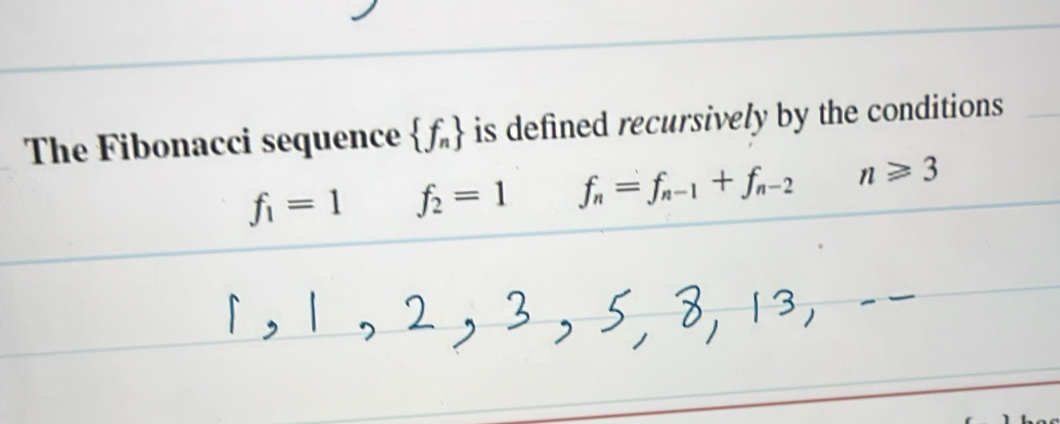 The Fibonacci sequence {fₙ} is defined recursively by the conditions
f₁ = 1 f₂ = 1 fₙ = fₙ₋₁ + fₙ₋₂ n ⩾ 3
1, 1, 2, 3, 5, 8, 13, --